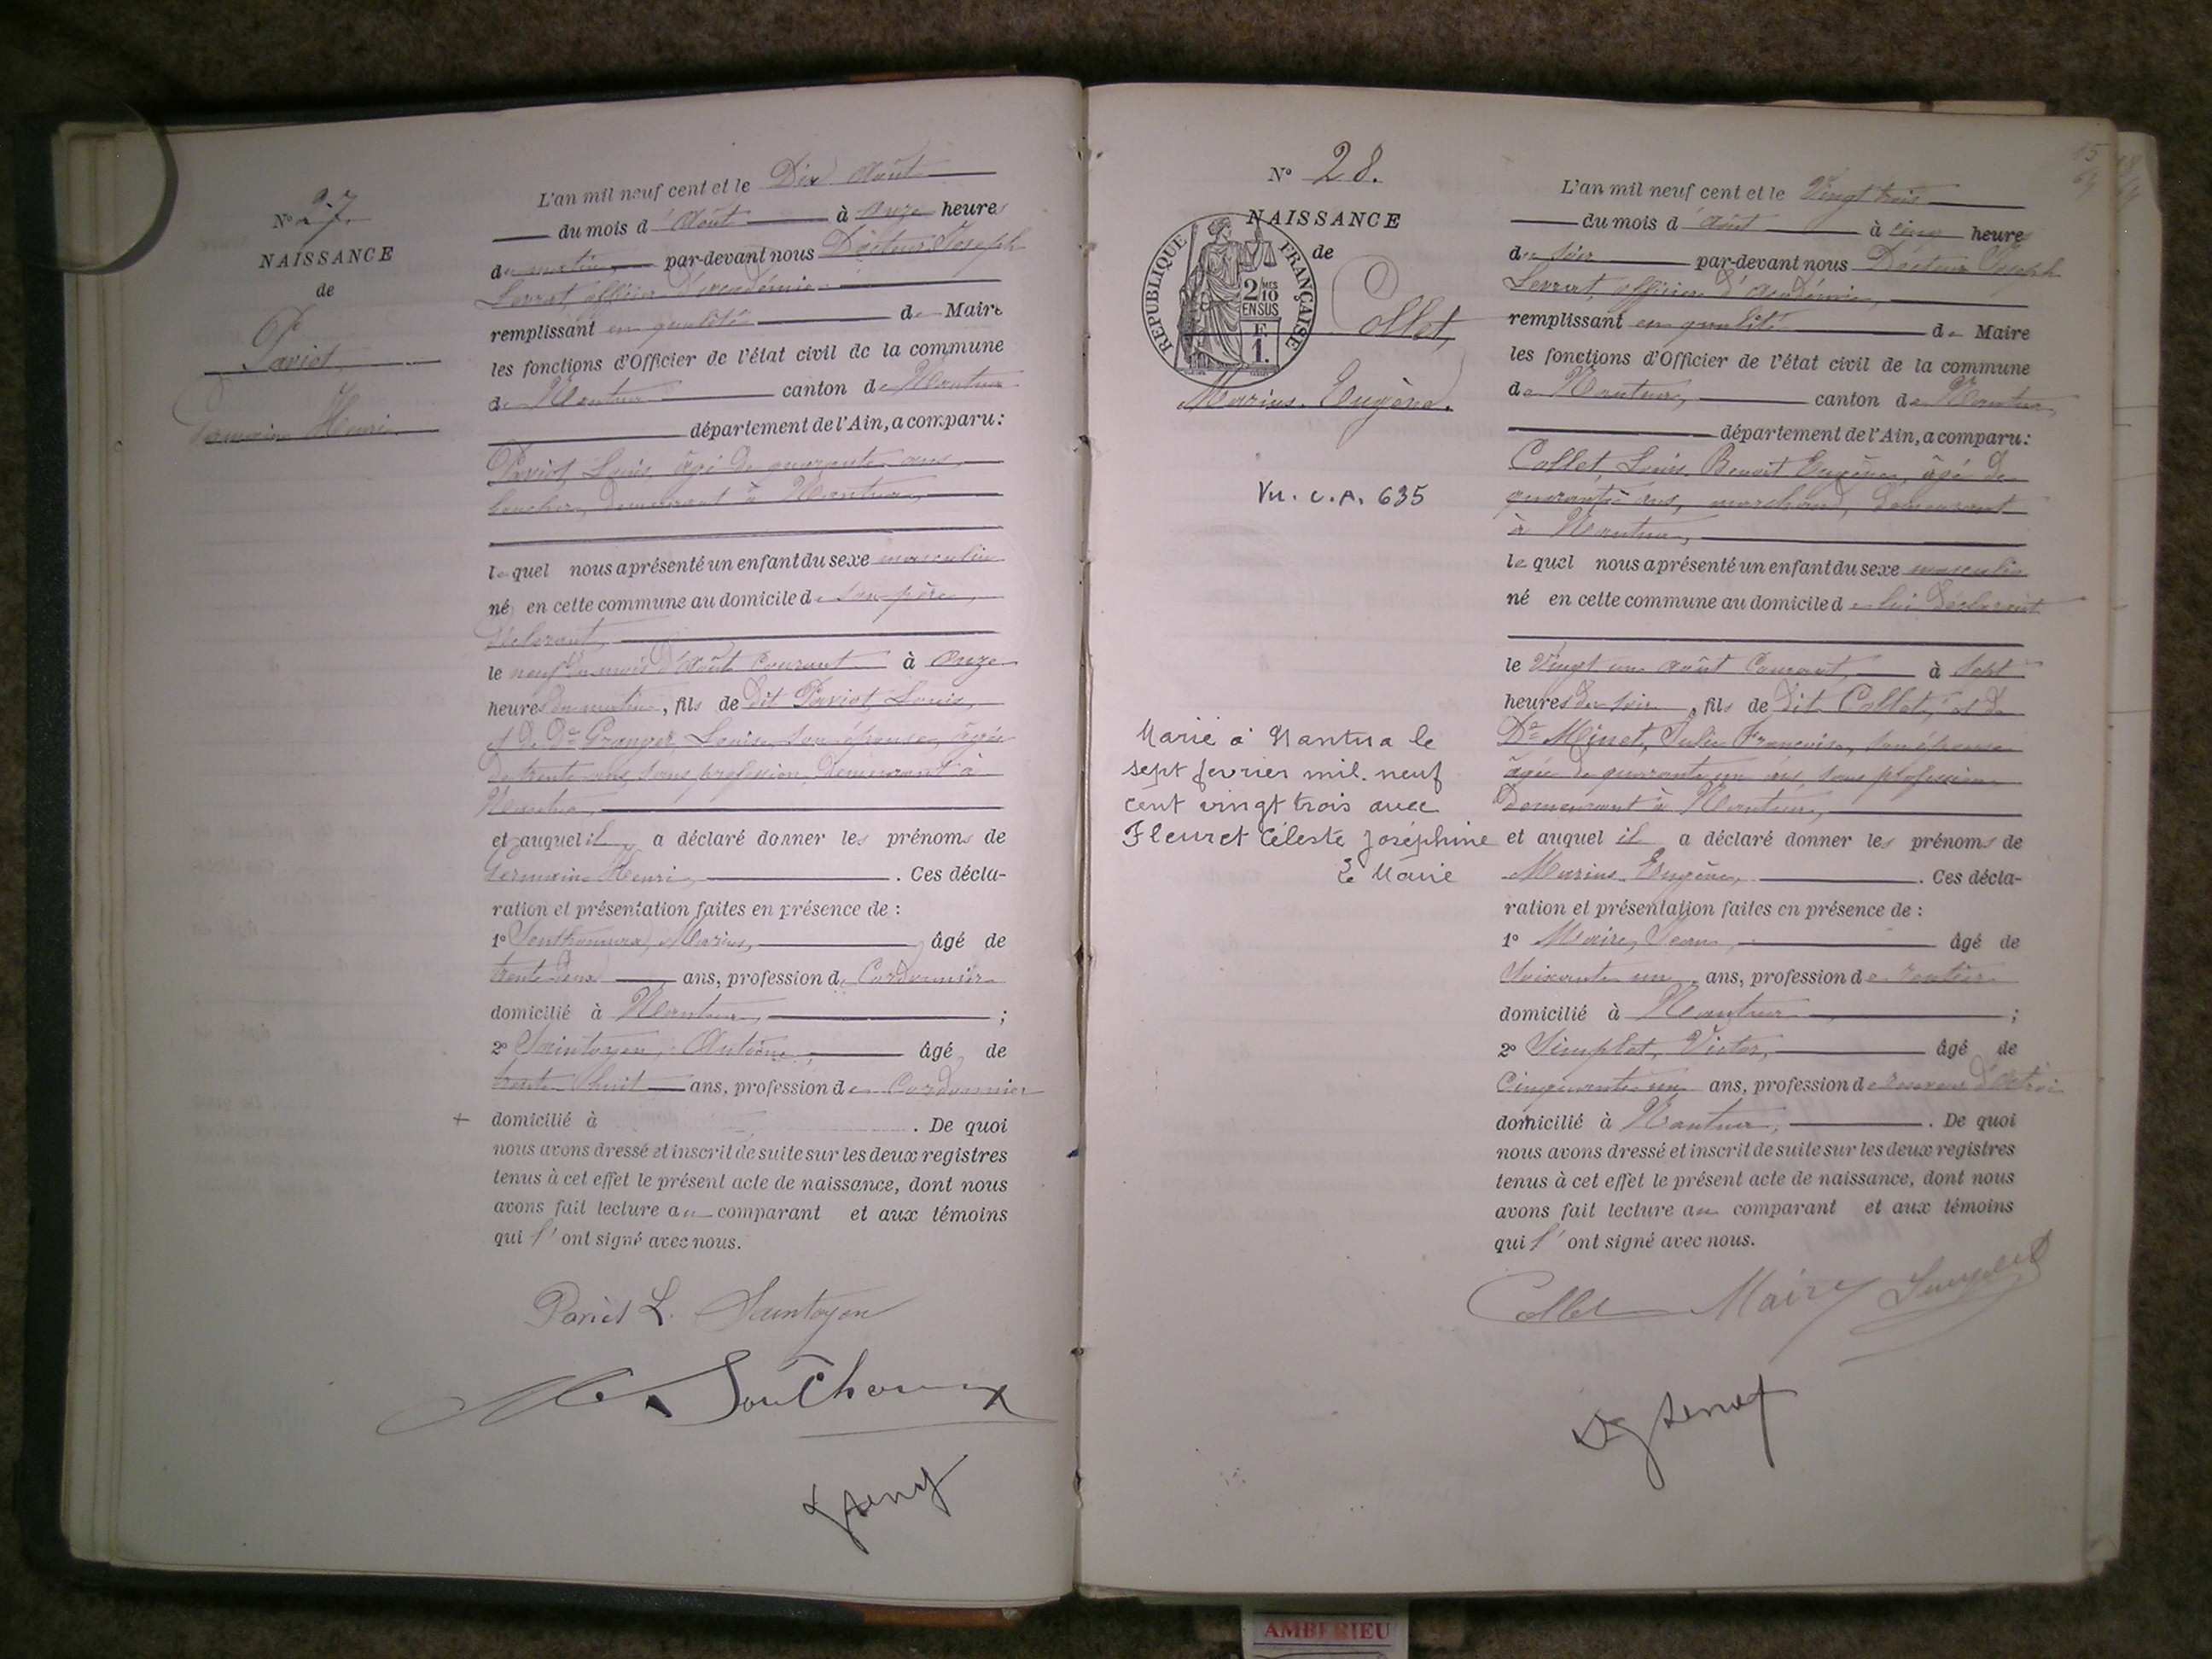 N° 27.
NAISSANCE
de
Pariot
Germain Henri
L'an mil neuf cent et le Dix Août
du mois d'Août à onze heures
du matin par-devant nous Docteur Joseph
officier d'Académie
remplissant en qualité de Maire
les fonctions d'Officier de l'état civil de la commune
de Nantua canton de Nantua
département de l'Ain, a comparu :
Pariot, Louis, âgé de quarante ans,
boucher, demeurant à Nantua,
lequel nous a présenté un enfant du sexe masculin
né en cette commune au domicile de son père,
déclarant,
le neuf du mois d'Août courant à onze
heures du matin, fils de dit Pariot, Louis,
et de De Granger, Louise, son épouse, âgée
de trente ans, sans profession, demeurant à
Nantua,
et auquel il a déclaré donner les prénoms de
Germain Henri, . Ces décla-
ration et présentation faites en présence de :
1° Marius, âgé de
trente deux ans, profession de Cordonnier
domicilié à Nantua, ;
2° Saintoyen, Antoine, âgé de
trente huit ans, profession de Cordonnier
+ domicilié à . De quoi
nous avons dressé et inscrit de suite sur les deux registres
tenus à cet effet le présent acte de naissance, dont nous
avons fait lecture au comparant et aux témoins
qui l'ont signé avec nous.
Pariot L. Saintoyen
N° 28.
NAISSANCE
de
RÉPUBLIQUE FRANÇAISE
2 MES
10
EN SUS
1.
Collet,
Marius Eugène.
Vu. C.A. 635
Marié à Nantua le
sept fevrier mil neuf
cent vingt trois avec
Fleuret Céleste Joséphine
Le Maire
L'an mil neuf cent et le Vingt trois
du mois d'Août à cinq heures
du soir par-devant nous Docteur Joseph
officier d'Académie,
remplissant en qualité de Maire
les fonctions d'Officier de l'état civil de la commune
de Nantua, canton de Nantua,
département de l'Ain, a comparu :
Collet, Louis Benoit Eugène, âgé de
quarante ans, marchand, demeurant
à Nantua,
lequel nous a présenté un enfant du sexe masculin
né en cette commune au domicile de lui déclarant
le Vingt un août Courant, à Sept
heures du soir, fils de dit Collet, et de
De Minet, Julie Françoise, son épouse
âgée de quarante un ans sans profession
demeurant à Nantua,
et auquel il a déclaré donner les prénoms de
Marius Eugène, . Ces décla-
ration et présentation faites en présence de :
1° Maire, Jean, âgé de
Soixante un ans, profession de rentier
domicilié à Nantua ;
2° Simplet, Victor, âgé de
Cinquante un ans, profession de receveur d'octroi
domicilié à Nantua, . De quoi
nous avons dressé et inscrit de suite sur les deux registres
tenus à cet effet le présent acte de naissance, dont nous
avons fait lecture au comparant et aux témoins
qui l'ont signé avec nous.
Collet Maire Simplet
AMBERIEU